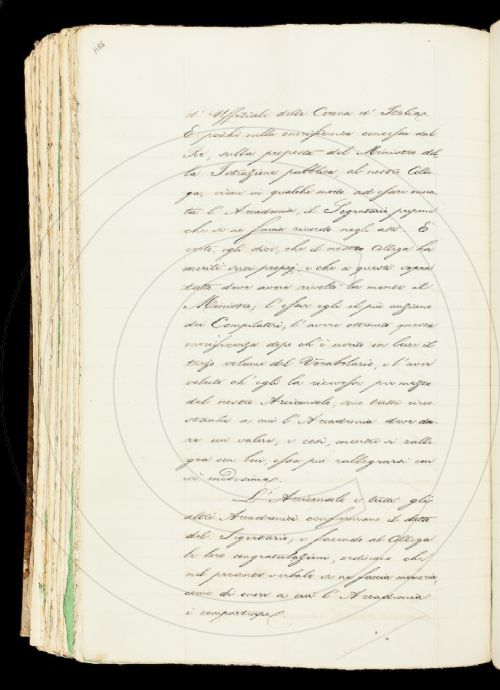 d' Uffiziale della Corona d' Italia.
E poichè nella onorificenza concessa dal
Re, sulla proposta del Ministro del-
la Istruzione pubblica, al nostro Colle-
ga, viene in qualche modo ad essere onora-
ta l' Accademia, il Segretario propone
che se ne faccia ricordo negli atti. È
certo, egli dice, che il nostro Collega ha
meriti suoi propri, e che a questi sopra
tutto deve avere rivolto la mente il
Ministro; l' esser egli il più anziano
dei Compilatori, l' avere ottenuta questa
onorificenza dopo ch' è uscito in luce il
terzo volume del Vocabolario, e l' aver
voluto ch' egli la ricevesse per mezzo
del nostro Arciconsolo, sono tutte circo-
stanze a cui l' Accademia deve da-
re un valore, e così, mentre si ralle-
gra con lui, essa può rallegrarsi con
sè medesima.
L' Arciconsolo e tutti gli
altri Accademici confermano il detto
del Segretario, e facendo al Collega
le loro congratulazioni, ordinano che
nel presente verbale se ne faccia memoria,
come di onore a cui l' Accademia
è compartecipe.